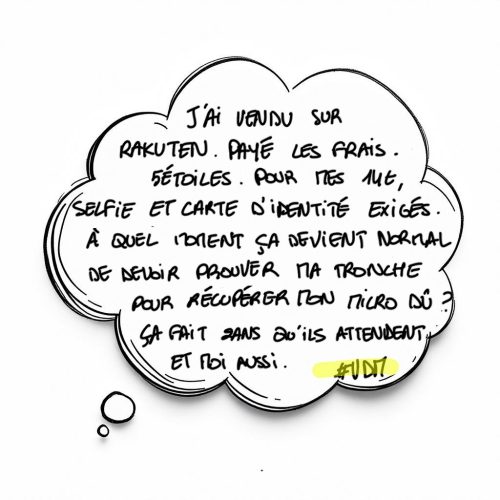 J'AI VENDU SUR
RAKUTEN. PAYÉ LES FRAIS.
5ÉTOILES. POUR MES 14€,
SELFIE ET CARTE D'IDENTITÉ EXIGÉS.
À QUEL MOMENT ÇA DEVIENT NORMAL
DE DEVOIR PROUVER MA TRONCHE
POUR RÉCUPÉRER MON MICRO DÛ ?
ÇA FAIT 2ANS QU'ILS ATTENDENT,
ET MOI AUSSI. #VDM